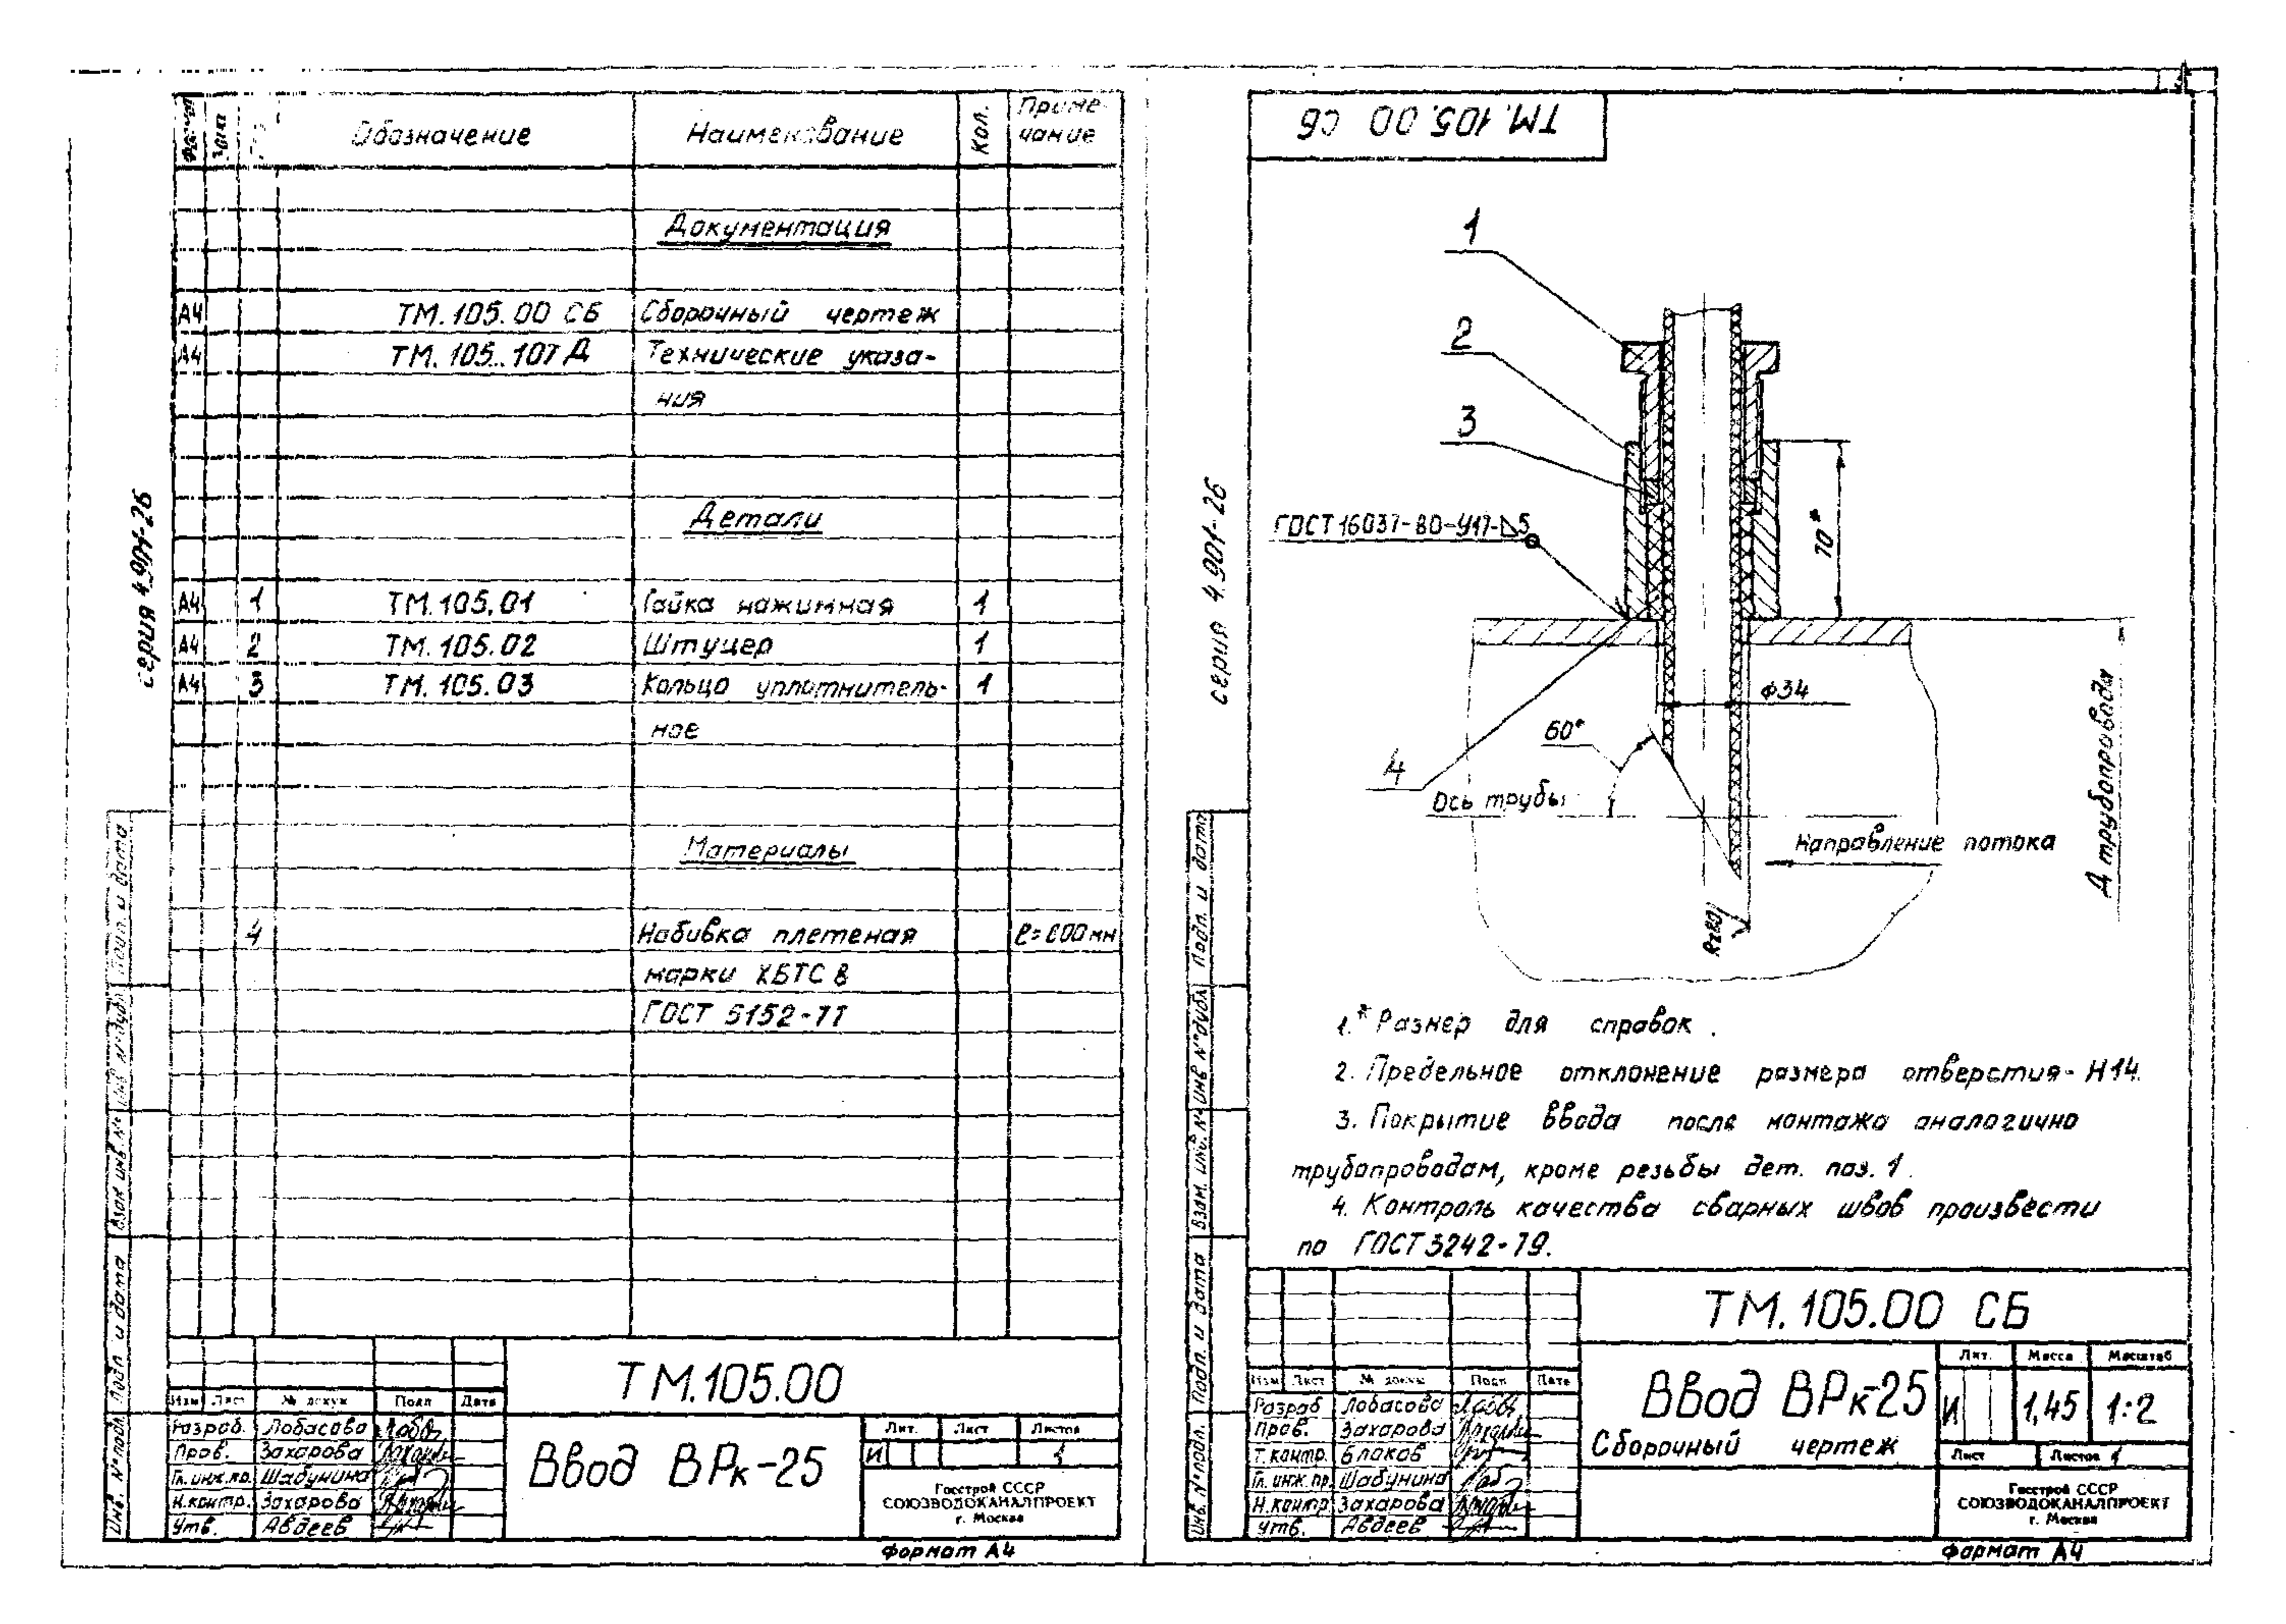 Формат Зона Обозначение Наименование Кол. Приме-
чание
Документация
А4 ТМ.105.00 СБ Сборочный чертеж
А4 ТМ.105..107Д Технические указа-
ния
Детали
А4 1 ТМ.105.01 Гайка нажимная 1
А4 2 ТМ.105.02 Штуцер 1
А4 3 ТМ.105.03 Кольцо уплотнитель- 1
ное
Материалы
4 Набивка плетеная
марки ХБТС 8
ГОСТ 5152-77
серия 4.901-26
Подп. и дата
Инв. №дубл
Взам инв. №
Подп и дата
Инв. №подл.
ТМ.105.00
Изм Лист № докум Подп Дата
Разраб. Лобасова
Пров. Захарова
Гл. инж. пр. Шабунина
Н.контр. Захарова
Утв. Авдеев
Ввод ВРк-25
Лит. Лист Листов
И 1
Госстрой СССР
СОЮЗВОДОКАНАЛПРОЕКТ
г. Москва
Формат А4
ТМ.105.00 СБ
серия 4.901-26
1
2
3
ГОСТ 16037-80-У17-⊿5
70*
ф34
60°
4
Ось трубы
Направление потока
Д трубопровода
Rz80
1.* Размер для справок.
2. Предельное отклонение размера отверстия- Н14.
3. Покрытие ввода после монтажа аналогично
трубопроводам, кроме резьбы дет. поз. 1.
4. Контроль качества сварных швов произвести
по ГОСТ 3242-79.
Подп. и дата
Инв №дубл
Взам. инв. №
Подп. и дата
Инв. №подл.
ТМ.105.00 СБ
Изм Лист № докум Подп Дата
Разраб Лобасова
Пров. Захарова
Т. контр. Блаков
Гл. инж. пр. Шабунина
Н.контр Захарова
Утв. Авдеев
Ввод ВРк-25
Сборочный чертеж
Лит. Масса Масштаб
И 1,45 1:2
Лист Листов 1
Госстрой СССР
СОЮЗВОДОКАНАЛПРОЕКТ
г. Москва
Формат А4